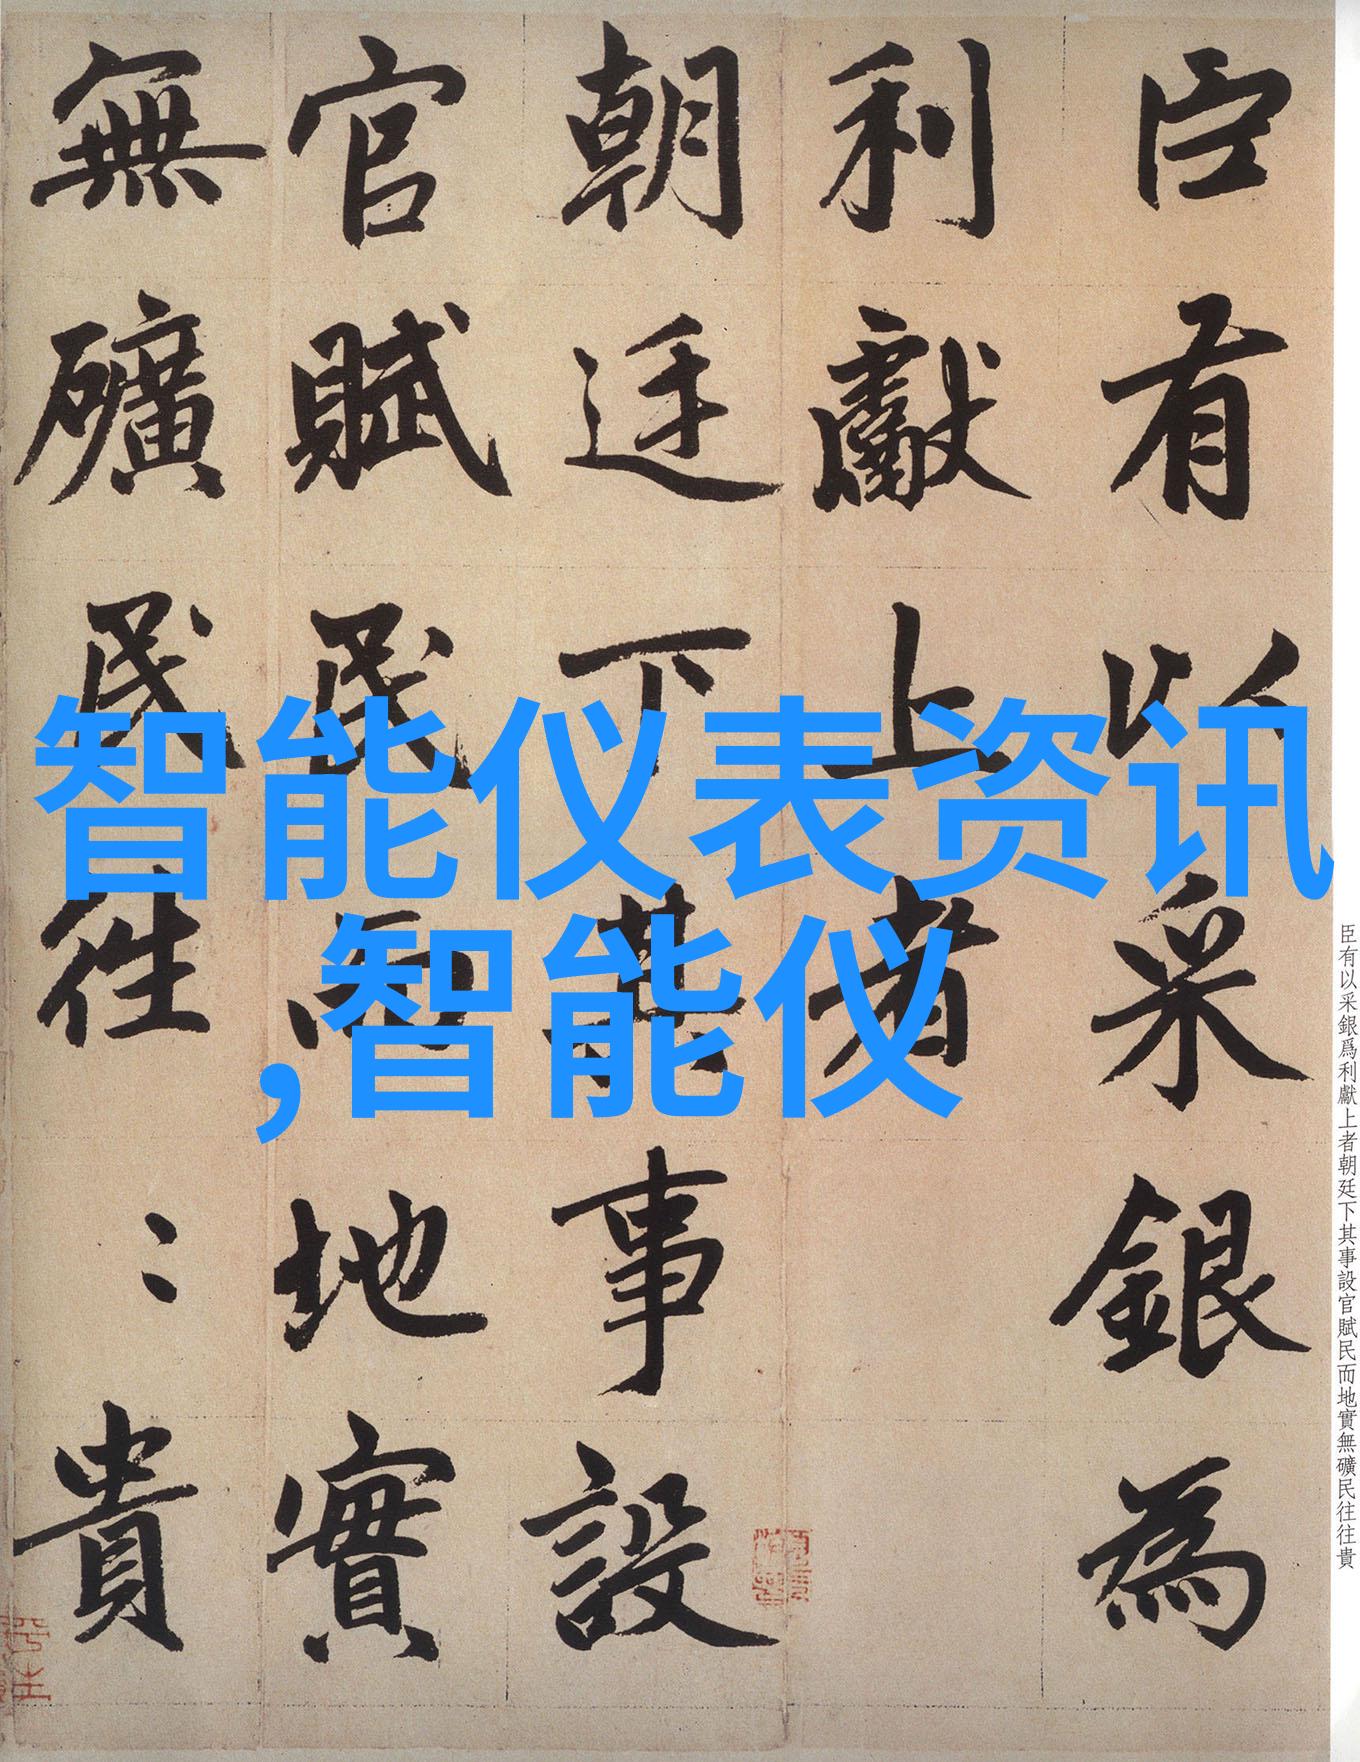 臣有以采銀為
利獻上者
朝廷下其事設
官賦民而地實
無礦民往〻貴
智能仪表资讯
,智能仪
臣有以采銀爲利獻上者朝廷下其事設官賦民而地實無礦民往往貴